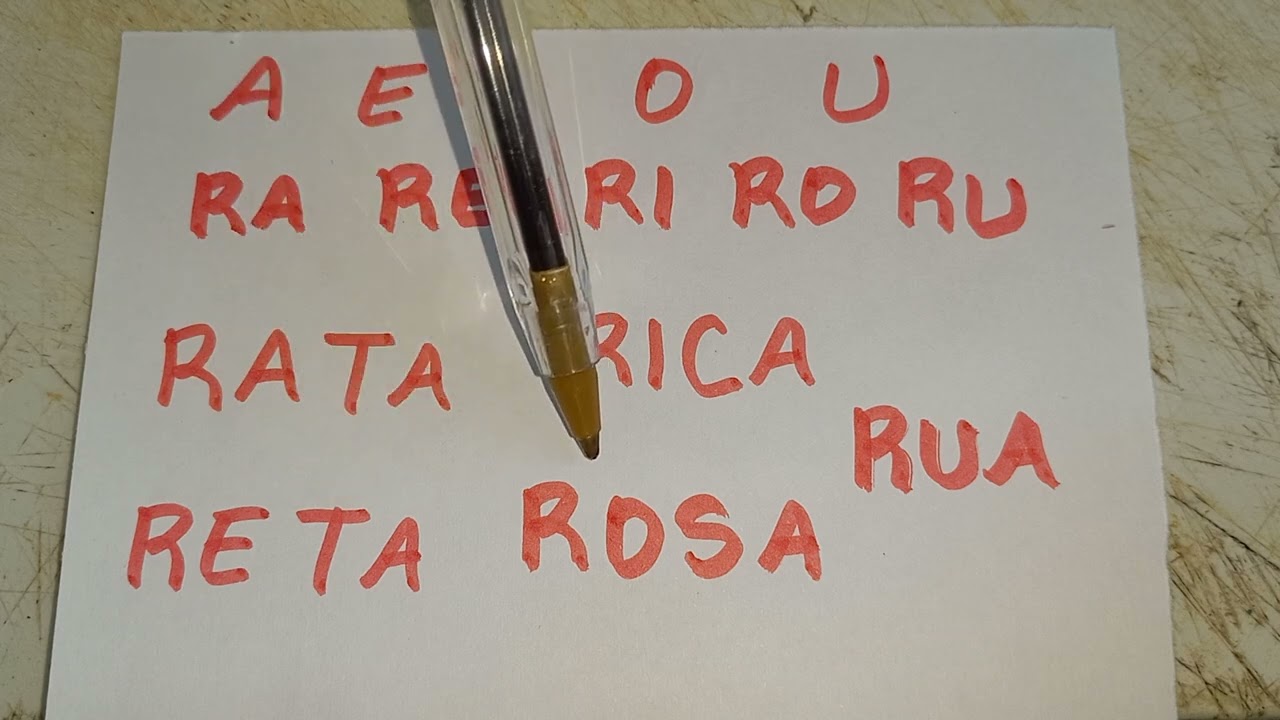 A E O U
RA RE RI RO RU
RATA RICA
RUA
RETA ROSA